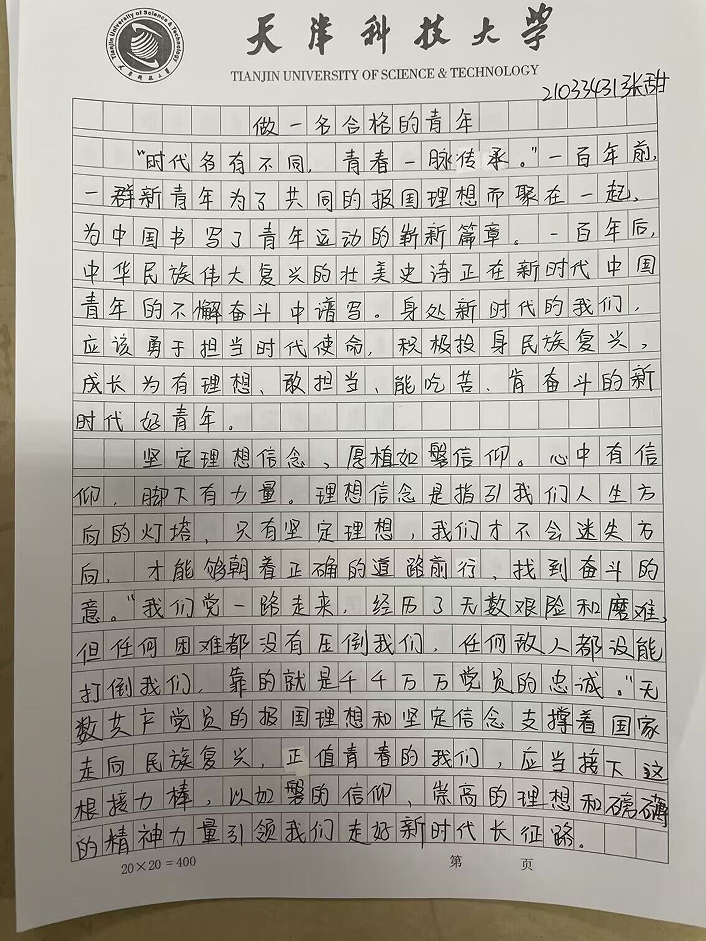 Tianjin University of Science & Technology
天津科技大学
天津科技大学
TIANJIN UNIVERSITY OF SCIENCE & TECHNOLOGY
21033431张甜
做一名合格的青年
“时代各有不同，青春一脉传承。”一百年前，
一群新青年为了共同的报国理想而聚在一起，
为中国书写了青年运动的崭新篇章。一百年后，
中华民族伟大复兴的壮美史诗正在新时代中国
青年的不懈奋斗中谱写。身处新时代的我们，
应该勇于担当时代使命，积极投身民族复兴，
成长为有理想、敢担当、能吃苦、肯奋斗的新
时代好青年。
坚定理想信念，愿植如磐信仰。心中有信
仰，脚下有力量。理想信念是指引我们人生方
向的灯塔，只有坚定理想，我们才不会迷失方
向，才能够朝着正确的道路前行，找到奋斗的
意。“我们党一路走来，经历了无数艰险和磨难，
但任何困难都没有压倒我们，任何敌人都没能
打倒我们，靠的就是千千万万党员的忠诚。”无
数共产党员的报国理想和坚定信念支撑着国家
走向民族复兴，正值青春的我们，应当接下这
根接力棒，以如磐的信仰、崇高的理想和磅礴
的精神力量引领我们走好新时代长征路。
20×20=400 第 页